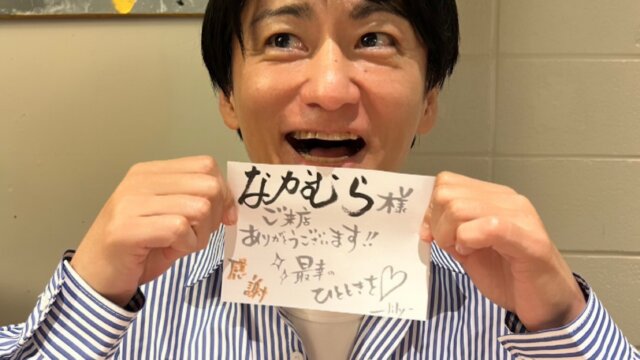 なかむら様
ご来店
ありがうございます!!
感謝
最幸の
ひとときを♡
-lily-